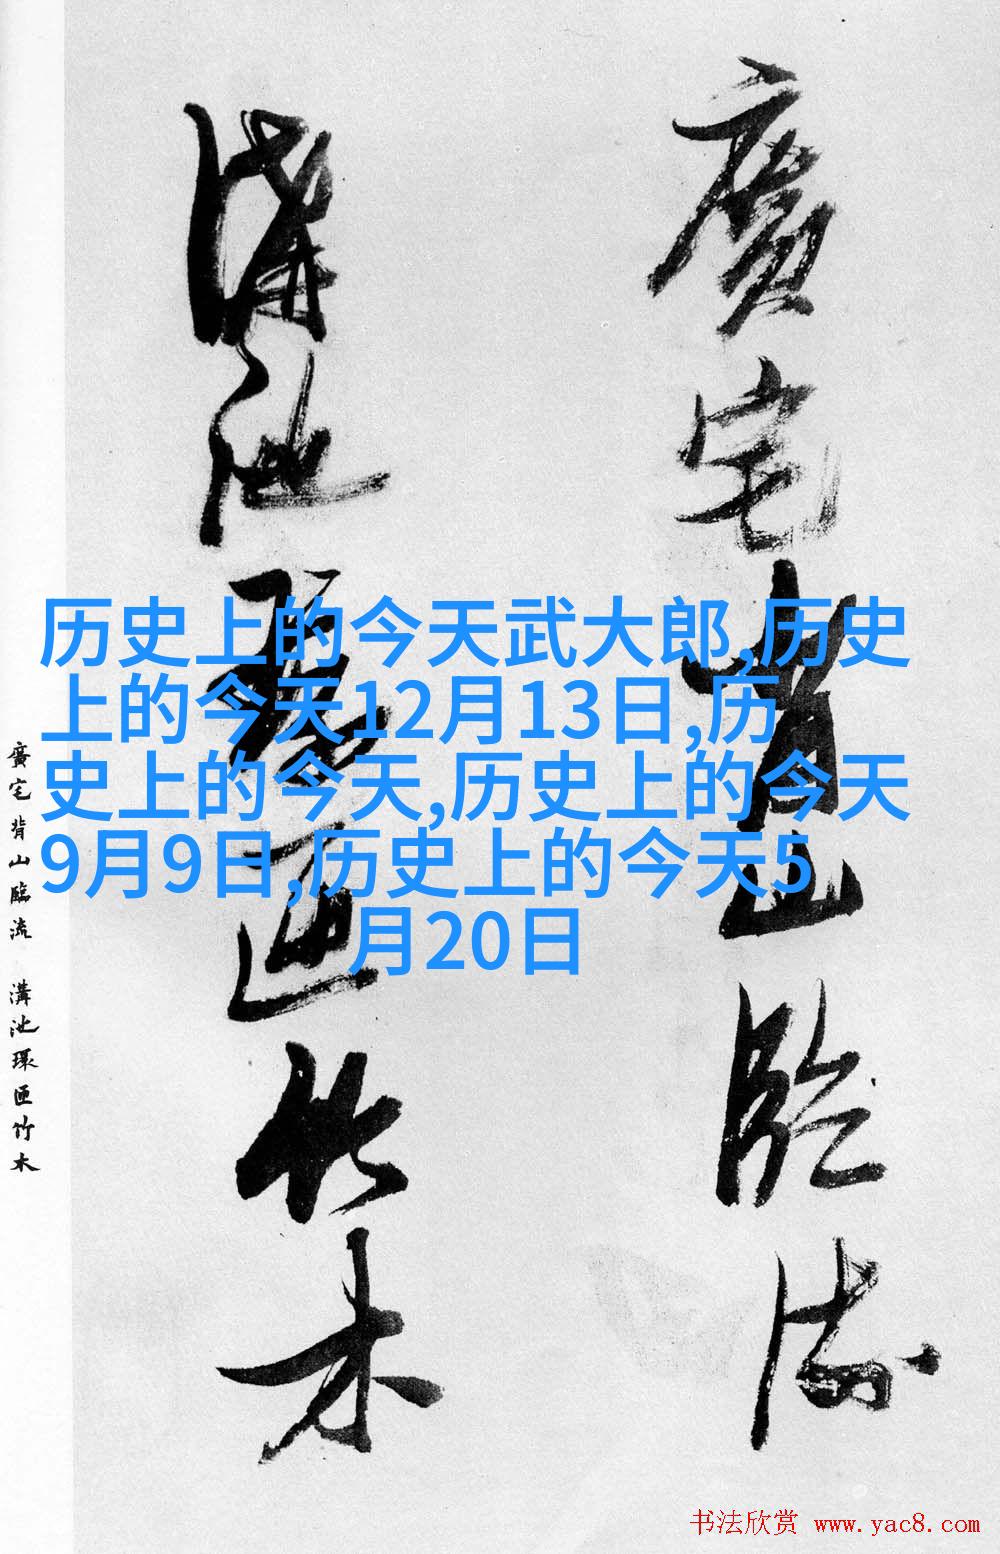 廣宅背山臨流
溝池環匝竹木
历史上的今天武大郎,历史
上的今天12月13日,历
史上的今天,历史上的今天
9月9日,历史上的今天5
月20日
廣宅背山臨流 溝池環匝竹木
书法欣赏 www.yac8.com